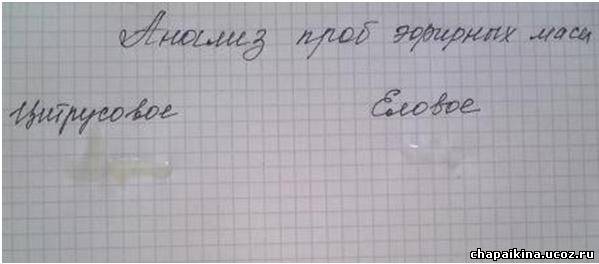 Анализ проб эфирных масел
Цитрусовое Еловое
chapaikina.ucoz.ru